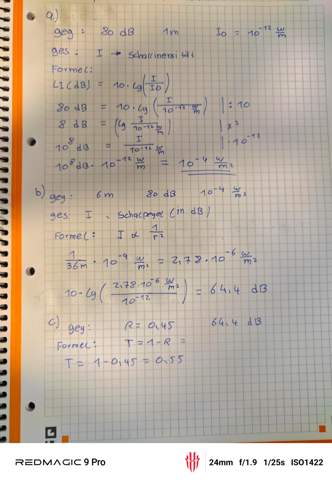 a)
geg: 80 dB 1m I0 = 10^-12 w/m
ges: I → Schallintensität
Formel:
L1(dB) = 10 · lg(I/I0)
80 dB = 10 · lg(I/10^-12 w/m) | : 10
8 dB = (lg I/10^-12 w/m) | x^3
10^8 dB = I/10^-12 w/m | · 10^-12
10^8 dB · 10^-12 w/m = 10^-4 w/m²
b) geg: 6m 80 dB 10^-4 w/m²
ges: I, Schallpegel (in dB)
Formel: I ∝ 1/r²
1/36m · 10^-4 w/m² = 2,78 · 10^-6 w/m²
10 · lg(2,78 · 10^-6 w/m² / 10^-12) = 64,4 dB
c) geg: R = 0,45 64,4 dB
Formel: T = 1-R =
T = 1-0,45 = 0,55
REDMAGIC 9 Pro 24mm f/1.9 1/25s ISO1422